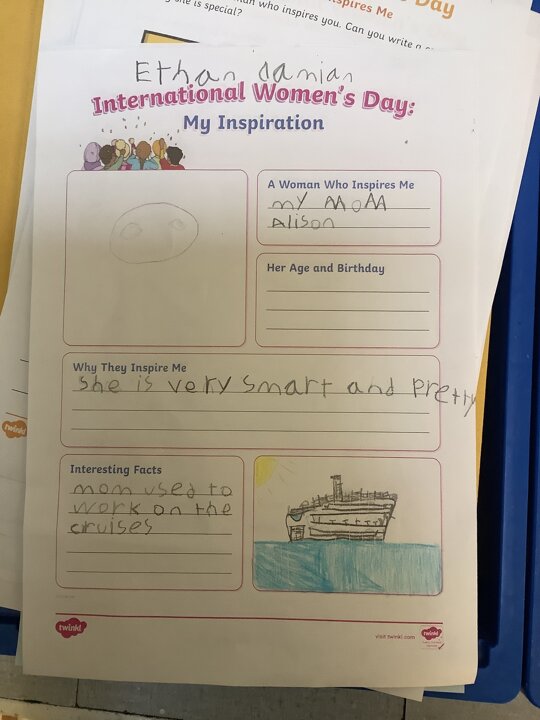 Day
nspires Me
man who inspires you. Can you write a
she is special?
Ethan damian
International Women's Day:
My Inspiration
A Woman Who Inspires Me
my MoM
Alison
Her Age and Birthday
Why They Inspire Me
she is very smart and pretty
Interesting Facts
mom used to
work on the
cruises
twinkl
twinkl
visit twinkl.com
twinkl